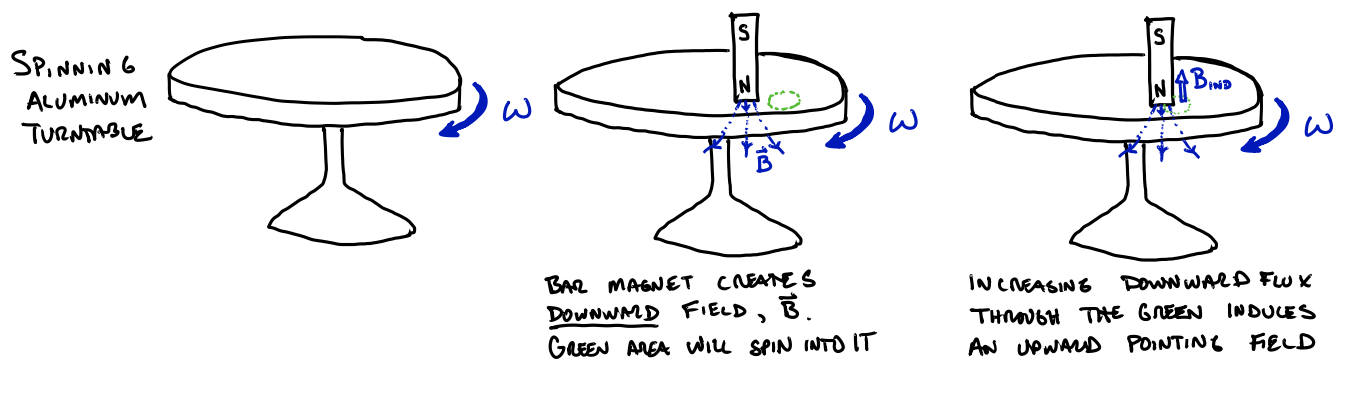 SPINNING
ALUMINUM
TURNTABLE
ω
S
N
B⃗
ω
BAR MAGNET CREATES
DOWNWARD FIELD, B⃗.
GREEN AREA WILL SPIN INTO IT
S
N
B_IND
ω
INCREASING DOWNWARD FLUX
THROUGH THE GREEN INDUCES
AN UPWARD POINTING FIELD